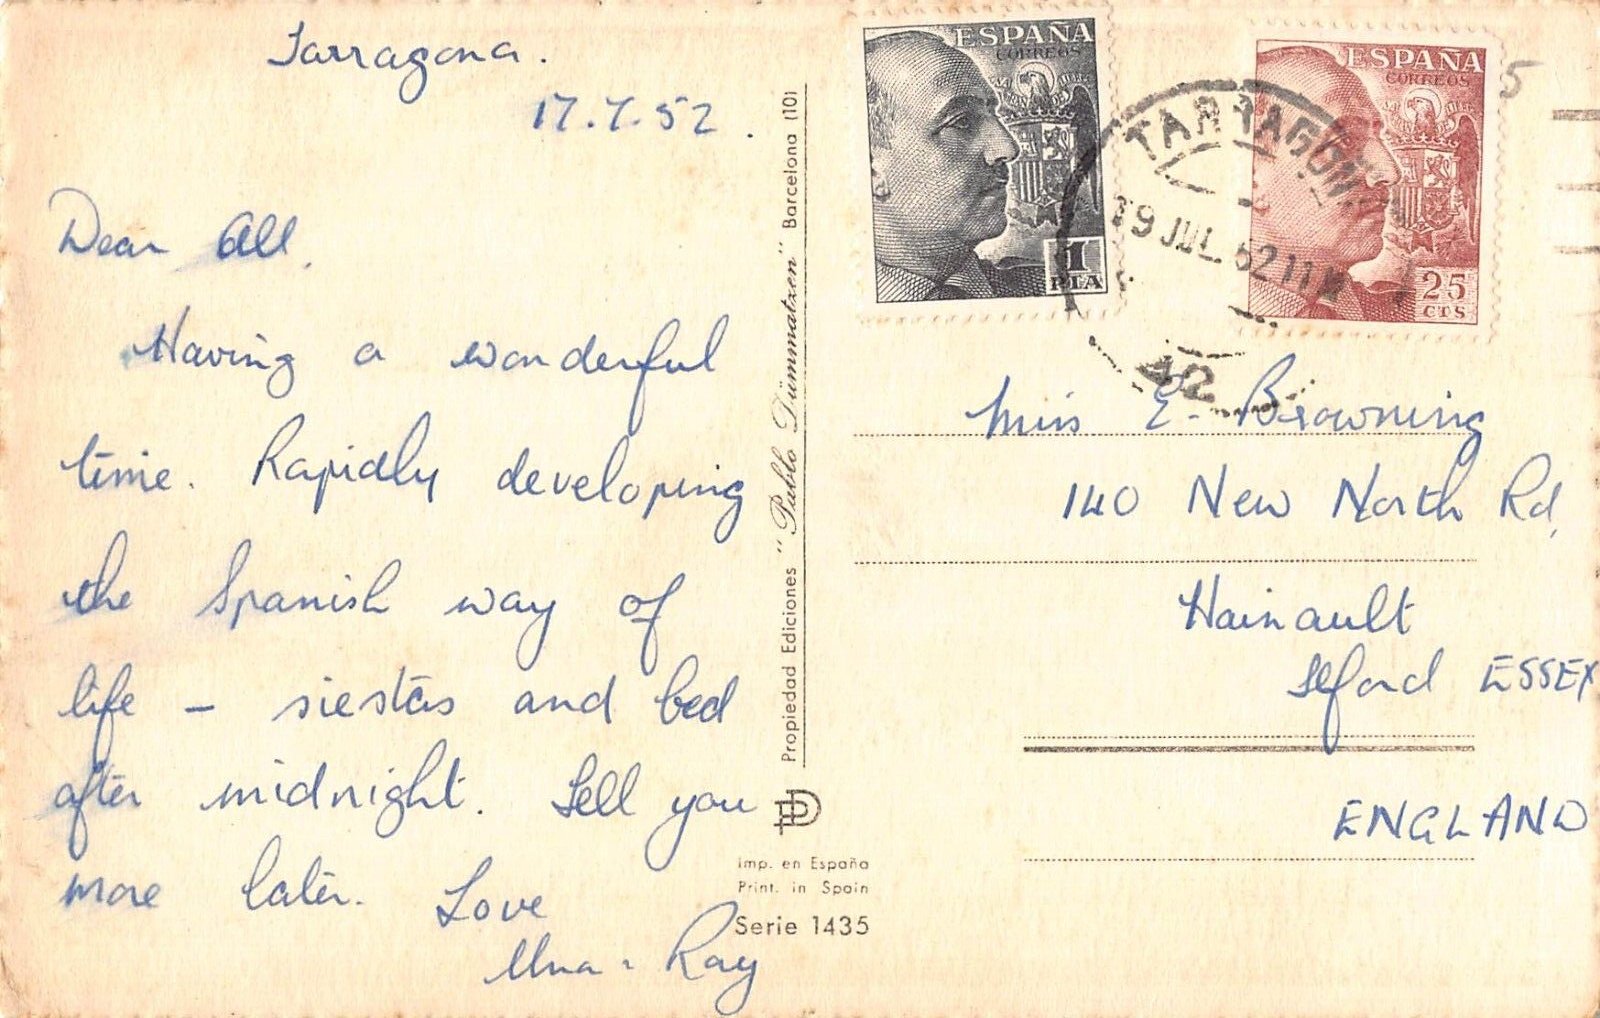 Tarragona.
17.7.52.
Dear All,
Having a wonderful
time. Rapidly developing
the Spanish way of
life – siestas and bed
after midnight. Tell you
more later. Love
Una & Ray
Propiedad Ediciones "Pablo Dümmatzen" Barcelona (10)
imp. en España
Print. in Spain
Serie 1435
ESPAÑA
CORREOS
1
PTA
ESPAÑA
CORREOS
25
CTS
TARRAGONA
19 JUL 52 11M
5
Miss E. Browning
140 New North Rd,
Hainault
Ilford ESSEX
ENGLAND